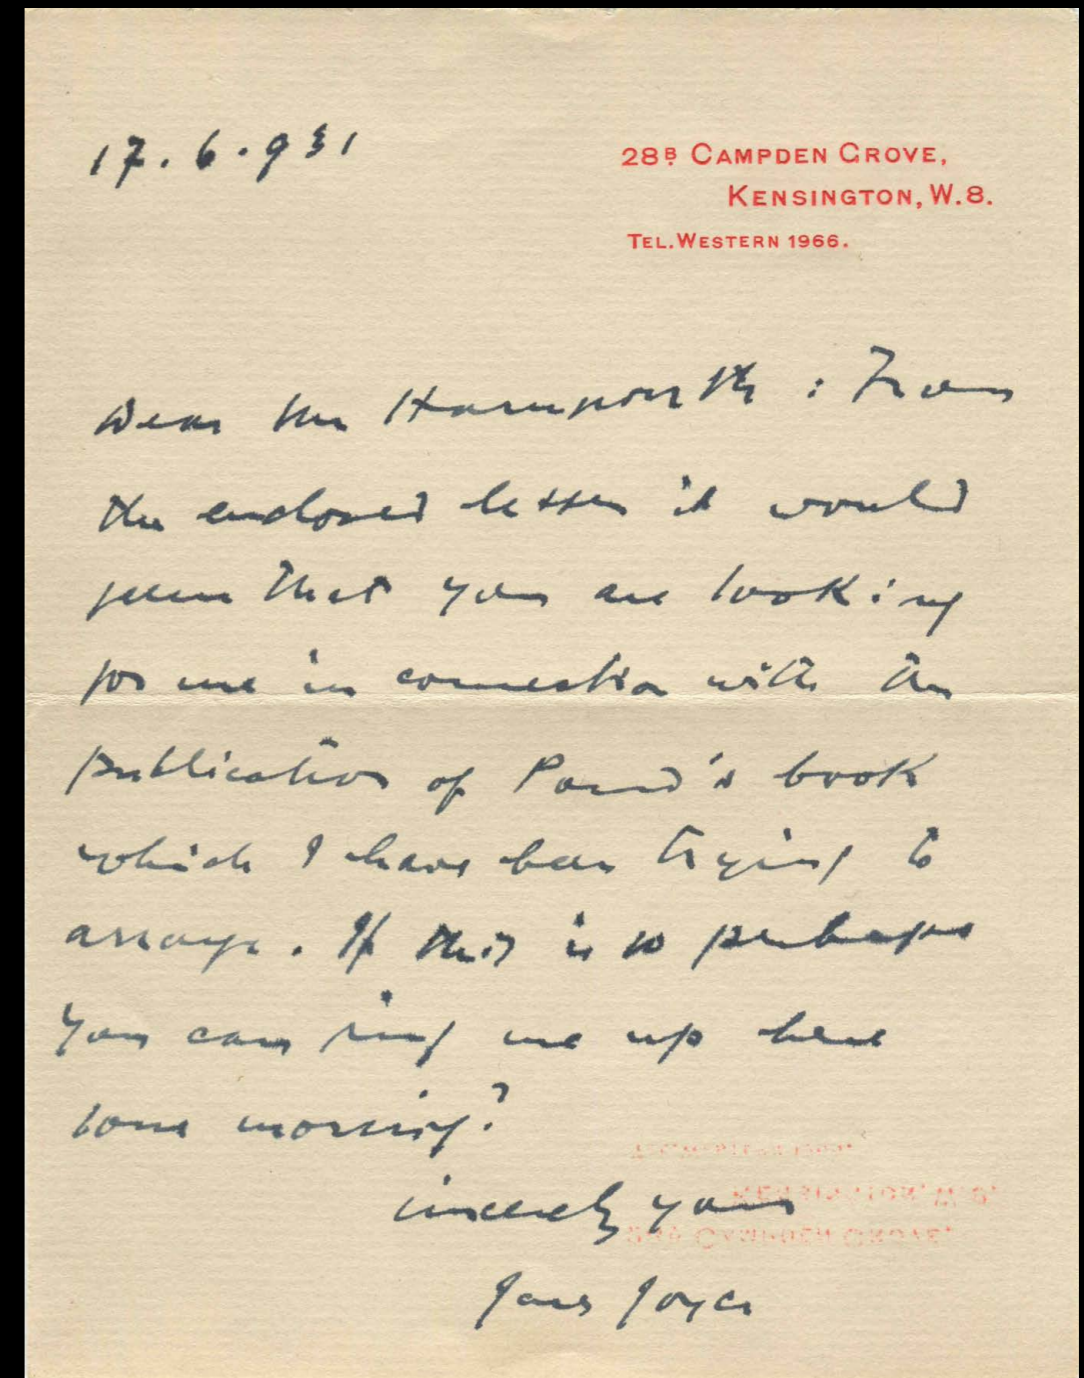 17.6.931
28B CAMPDEN GROVE,
KENSINGTON, W.8.
TEL. WESTERN 1966.
Dear Mr Harmsworth : From
the enclosed letter it would
seem that you are looking
for me in connection with the
publication of Pound's book
which I have been trying to
arrange. If this is so perhaps
you can ring me up here
some morning?
sincerely yours
James Joyce
TEL. WESTERN 1966.
KENSINGTON, W.8.
28B CAMPDEN GROVE,